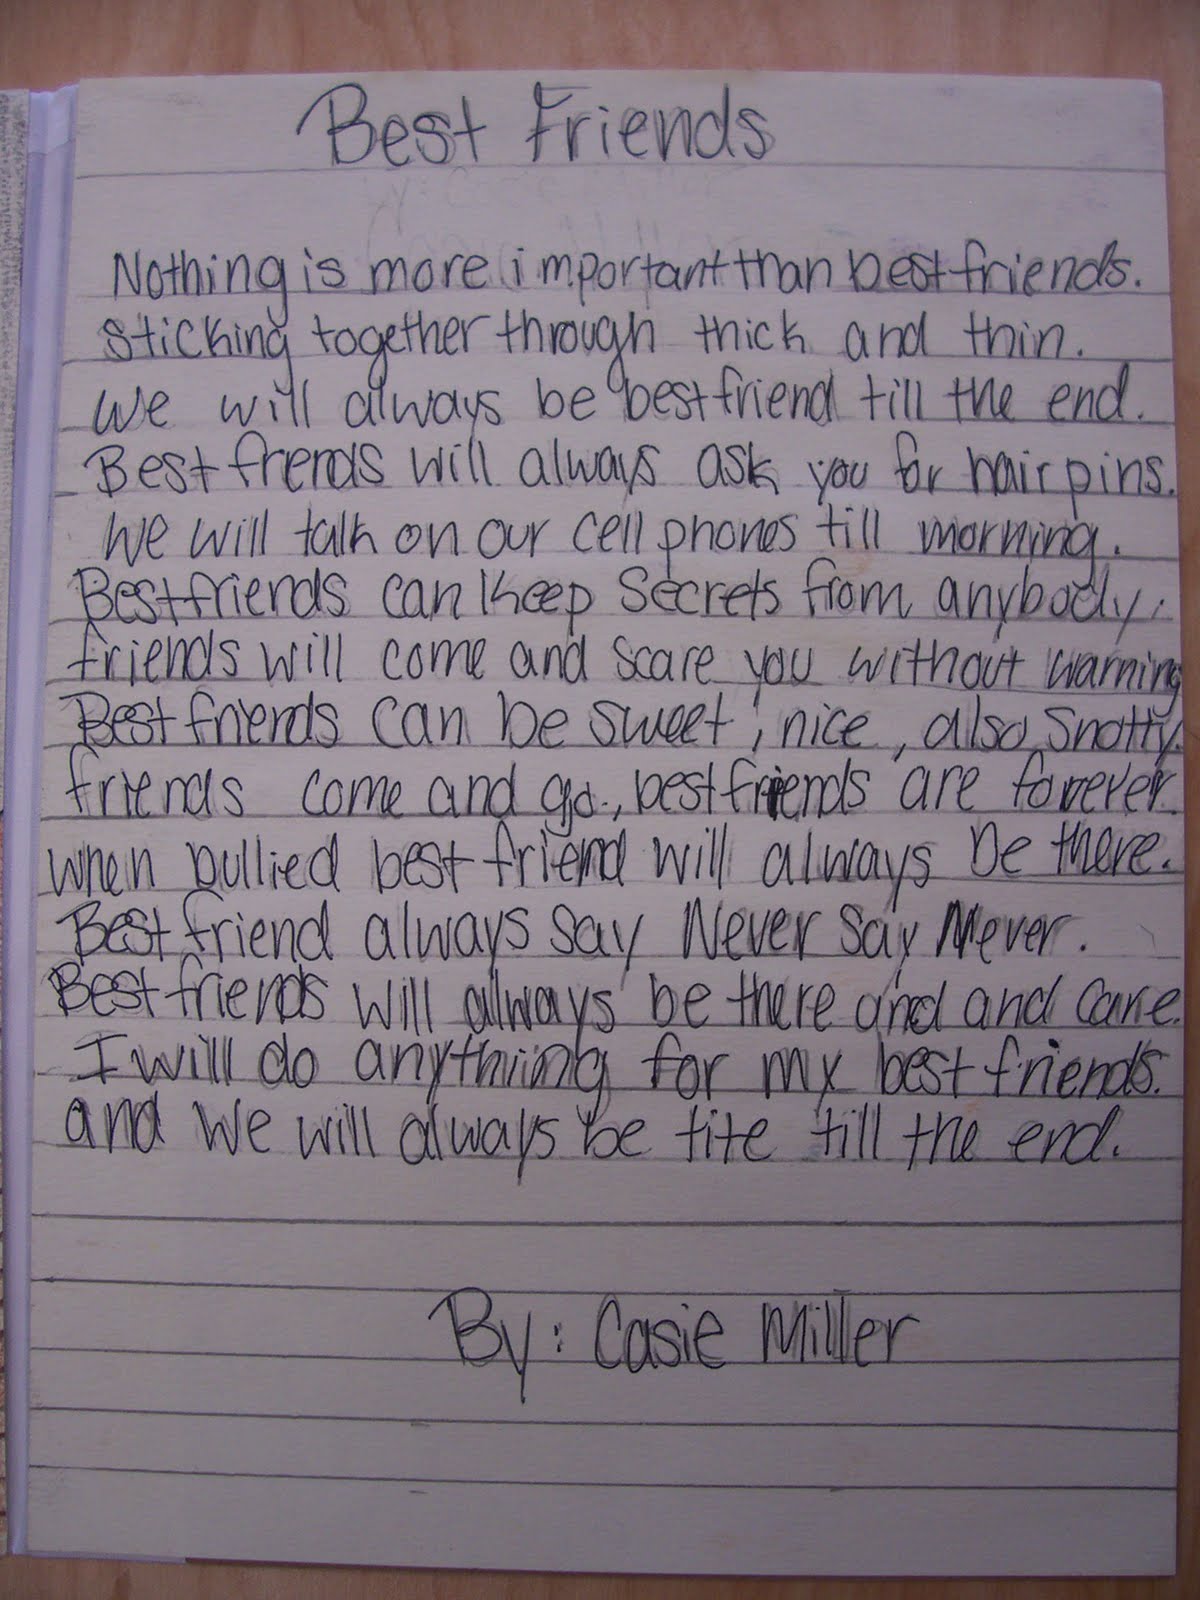 Best Friends
Nothing is more important than best friends.
Sticking together through thick and thin.
We will always be best friend till the end.
Best friends will always ask you for hair pins.
We will talk on our cell phones till morning.
Best friends can keep secrets from anybody.
friends will come and scare you without warning
Best friends can be sweet, nice, also snotty.
friends come and go, best friends are forever.
when bullied best friend will always be there.
Best friend always say Never Say Never.
Best friends will always be there and and care.
I will do anything for my best friends.
and we will always be tite till the end.
By: Casie Miller